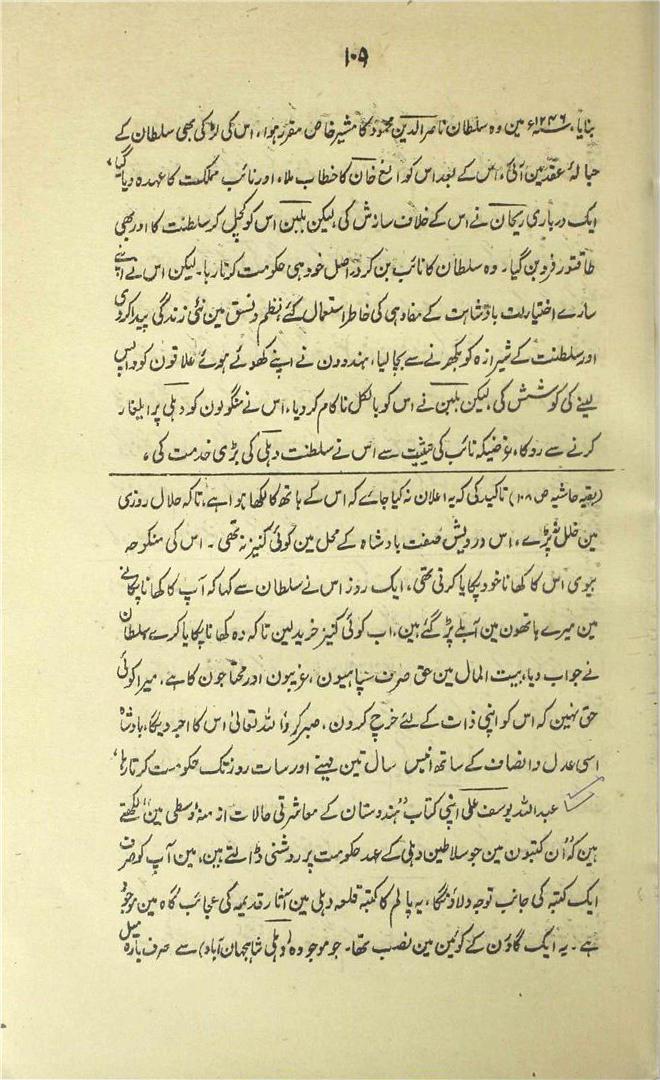 ۱۰۹
بنایا، ۱۲۴۶ء مین وہ سلطان ناصرالدین محمود کا مشیر خاص مقرر ہوا، اس کی لڑکی بھی سلطان کے
حبالۂ عقد مین آئی، اس کے بعد اس کو الغ خان کا خطاب ملا، اور نائب مملکت کا عہدہ دیا گیا،
ایک درباری ریحان نے اس کے خلاف سازش کی، لیکن بلبن اس کو کچل کر سلطنت کا اور بھی
طاقتور فرد بن گیا۔ وہ سلطان کا نائب بن کر دراصل خود ہی حکومت کرتا رہا۔ لیکن اس نے اپنے
سارے اختیارات بادشاہت کے مفاد ہی کی خاطر استعمال کئے نظم و نسق مین نئی زندگی پیدا کر دی
اور سلطنت کے شیرازہ کو بکھرنے سے بچا لیا، ہندوون نے اپنے کھوئے ہوئے علاقون کو واپس
لینے کی کوشش کی، لیکن بلبن نے اس کو بالکل ناکام کر دیا، اس نے منگولون کو دہلی پر ایلغار
کرنے سے روکا، غرضیکہ نائب کی حیثیت سے اس نے سلطنت دہلی کی بڑی خدمت کی،
(بقیہ حاشیہ ص ۱۰۸) تاکید کی کہ یہ اعلان نہ کیا جائے کہ اس کے ہاتھ کا لکھا ہوا ہے، تاکہ حلال روزی
مین خلل نہ پڑے، اس درویش صفت بادشاہ کے محل مین کوئی کنیز نہ تھی۔ اس کی منکوحہ
بیوی اس کا کھانا خود پکایا کرتی تھی، ایک روز اس نے سلطان سے کہا کہ آپ کا کھانا پکانے
مین میرے ہاتھون مین آبلے پڑ گئے ہین، اب کوئی کنیز خرید لین تاکہ وہ کھانا پکایا کرے سلطان
نے جواب دیا، بیت المال مین حق صرف سپاہیون، غریبون اور محتاجون کا ہے، میرا کوئی
حق نہین کہ اس کو اپنی ذات کے لئے خرچ کرون، صبر کرو اللہ تعالیٰ اس کا اجر دیگا، بادشاہ
اسی عدل و انصاف کے ساتھ انیس سال تین مہینے اور سات روز تک حکومت کرتا رہا،
عبداللہ یوسف علی اپنی کتاب "ہندوستان کے معاشرتی حالات ازمنہ وسطی مین" لکھتے
ہین کہ "ان کتبون مین جو سلاطین دہلی کے عہد حکومت پر روشنی ڈالتے ہین، مین آپ کو صرف
ایک کتبہ کی جانب توجہ دلاؤنگا، یہ پالم کا کتبہ قلعہ دہلی مین آثار قدیمہ کی عجائب گاہ مین موجود
ہے۔ یہ ایک گاؤن کے کوئین مین نصب تھا۔ جو موجودہ (دہلی شاہجہان آباد) سے صرف بارہ میل